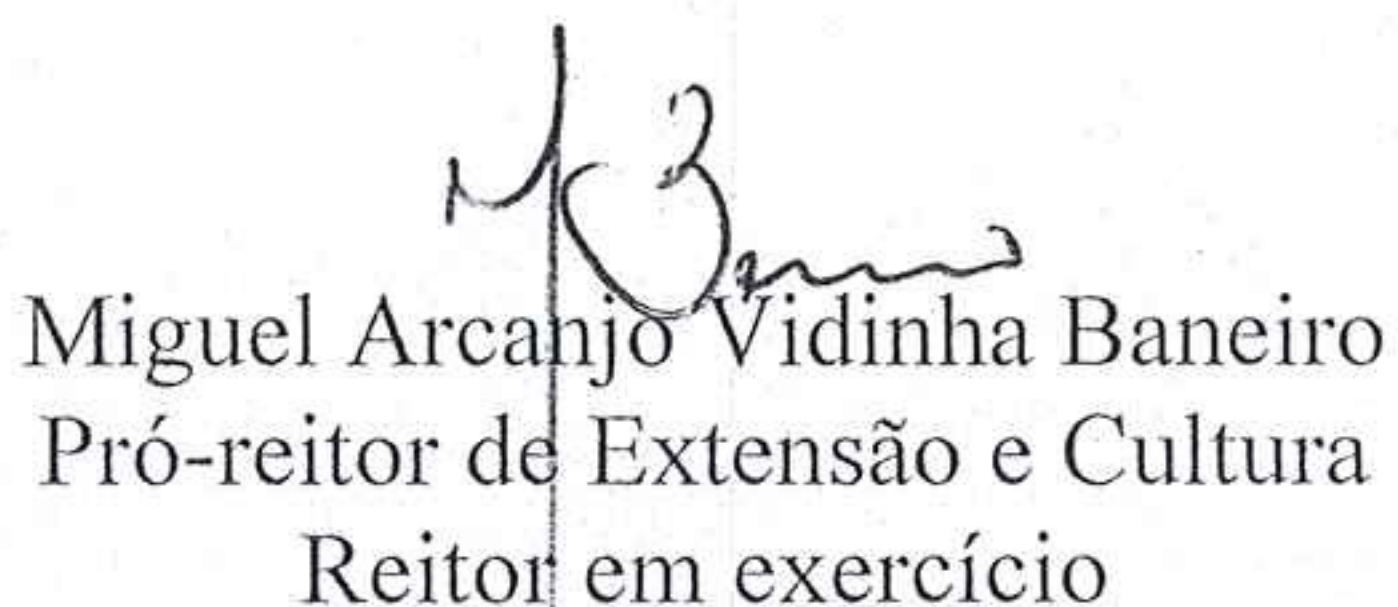 Miguel Arcanjo Vidinha Baneiro
Pró-reitor de Extensão e Cultura
Reitor em exercício